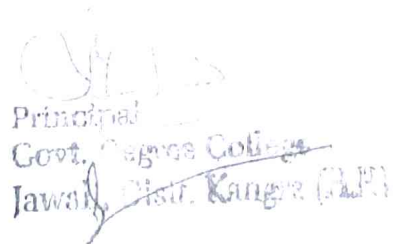 Principal
Govt. Degree College
Jawali, Distt. Kangra (H.P.)